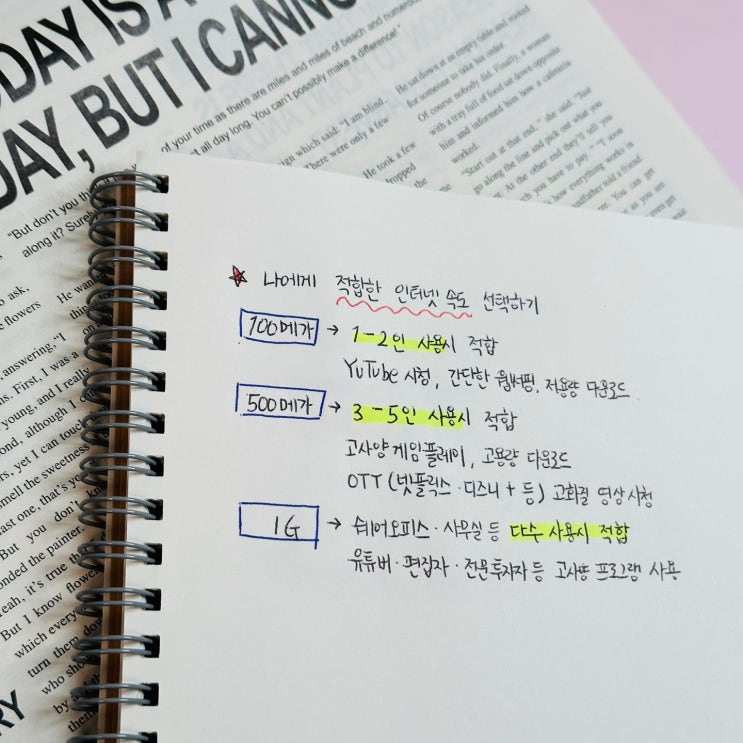 DAY IS A
DAY, BUT I CANNO
of your time as there are miles and miles of beach and numerou
all day long. You can't possibly make a difference!"
ign which said: "I am blind,
There were only a few
He took a few
dropped
He sat down at an empty table and waited
for someone to take his order
Of course nobody did. Finally, a woman
with a tray full of food sat down opposite
him and informed him how a cafeteria
worked.
"Start out at that end," she said. "Just
go along the line and pick out what you
At the other end they'll tell you
you have to pay."
is how everything works in
grandfather told a friend
You can get
as you are
"But don't you th
along it? Surely
나에게 적합한 인터넷 속도 선택하기
100메가 → 1-2인 사용시 적합
YuTube 시청, 간단한 웹써핑, 저용량 다운로드
500메가 → 3-5인 사용시 적합
고사양 게임플레이, 고용량 다운로드
OTT (넷플릭스·디즈니+ 등) 고화질 영상시청
1G → 쉐어오피스·사무실 등 다수 사용시 적합
유튜버·편집자·전문투자자 등 고사양 프로그램 사용
to ask,
e flowers
answering, "I
s. First, I was a
young, and I really
ond, although I
s, yet I can touch
smell the sweetness
ast one, that's yo
But you don't kn
onded the painter.
Yeah, it's true th
But I know flower
which every
turn them dow
who sho
by a
them
RY